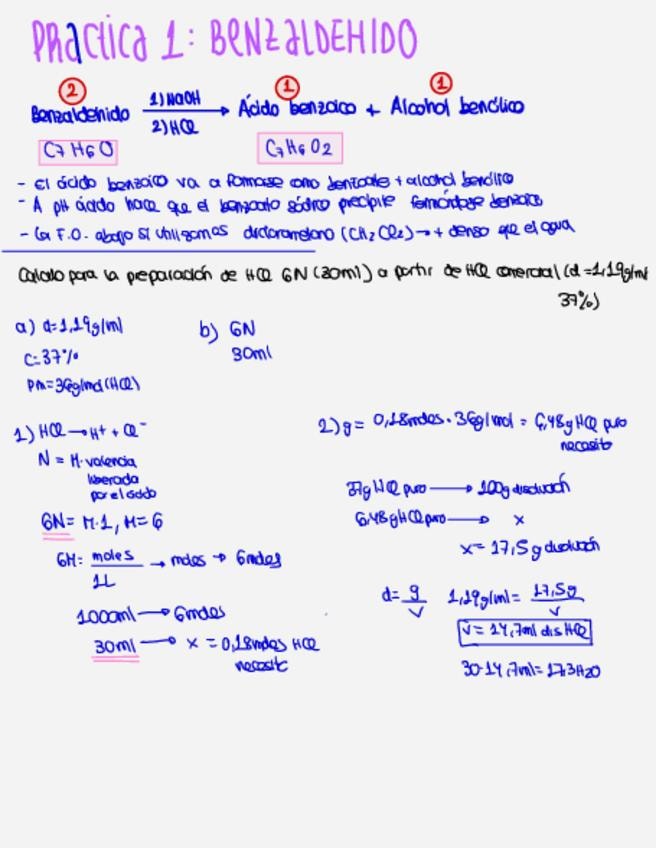 PRactica 1: BENZALDEHIDO
2 1 1
Benzaldehido 1) NaOH 2) HCl → Ácido benzoico + Alcohol bencílico
C7H6O C7H6O2
- El ácido benzoico va a formarse como benzoato + alcohol bencílico
- A pH ácido hace que el benzoato sódico precipite
- La F.O. abajo si utilizamos diclorometano (CH2Cl2) → + denso que el agua
Calculo para la preparación de HCl 6N (30ml) a partir de HCl comercial (d = 1,19g/ml
37%)
a) d=1,19g/ml
C=37%
Pm=36g/mol (HCl)
b) 6N
30ml
1) HCl → H+ + Cl-
N = M·valencia
liberada
por el ácido
6N = M·1, M=6
6M = moles/1L → moles → 6moles
1000ml → 6moles
30ml → x = 0,18moles HCl
necesito
2) g = 0,18moles · 36g/mol = 6,48g HCl puro
necesito
37g HCl puro → 100g disolución
6,48g HCl puro → x
x = 17,5g disolución
d = g/v 1,19g/ml = 17,5g/v
v = 14,7ml dis HCl
30-14,7ml = 17,3H2O